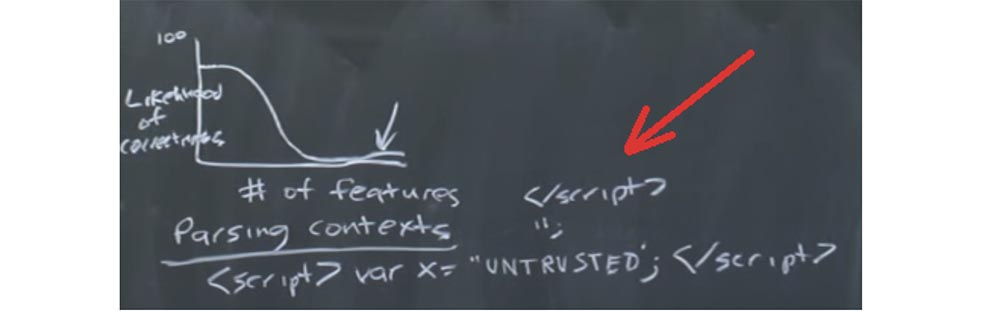 100
Likelihood
of
correctness
# of features
</script>
Parsing contexts
";
<script> var x= "UNTRUSTED"; </script>